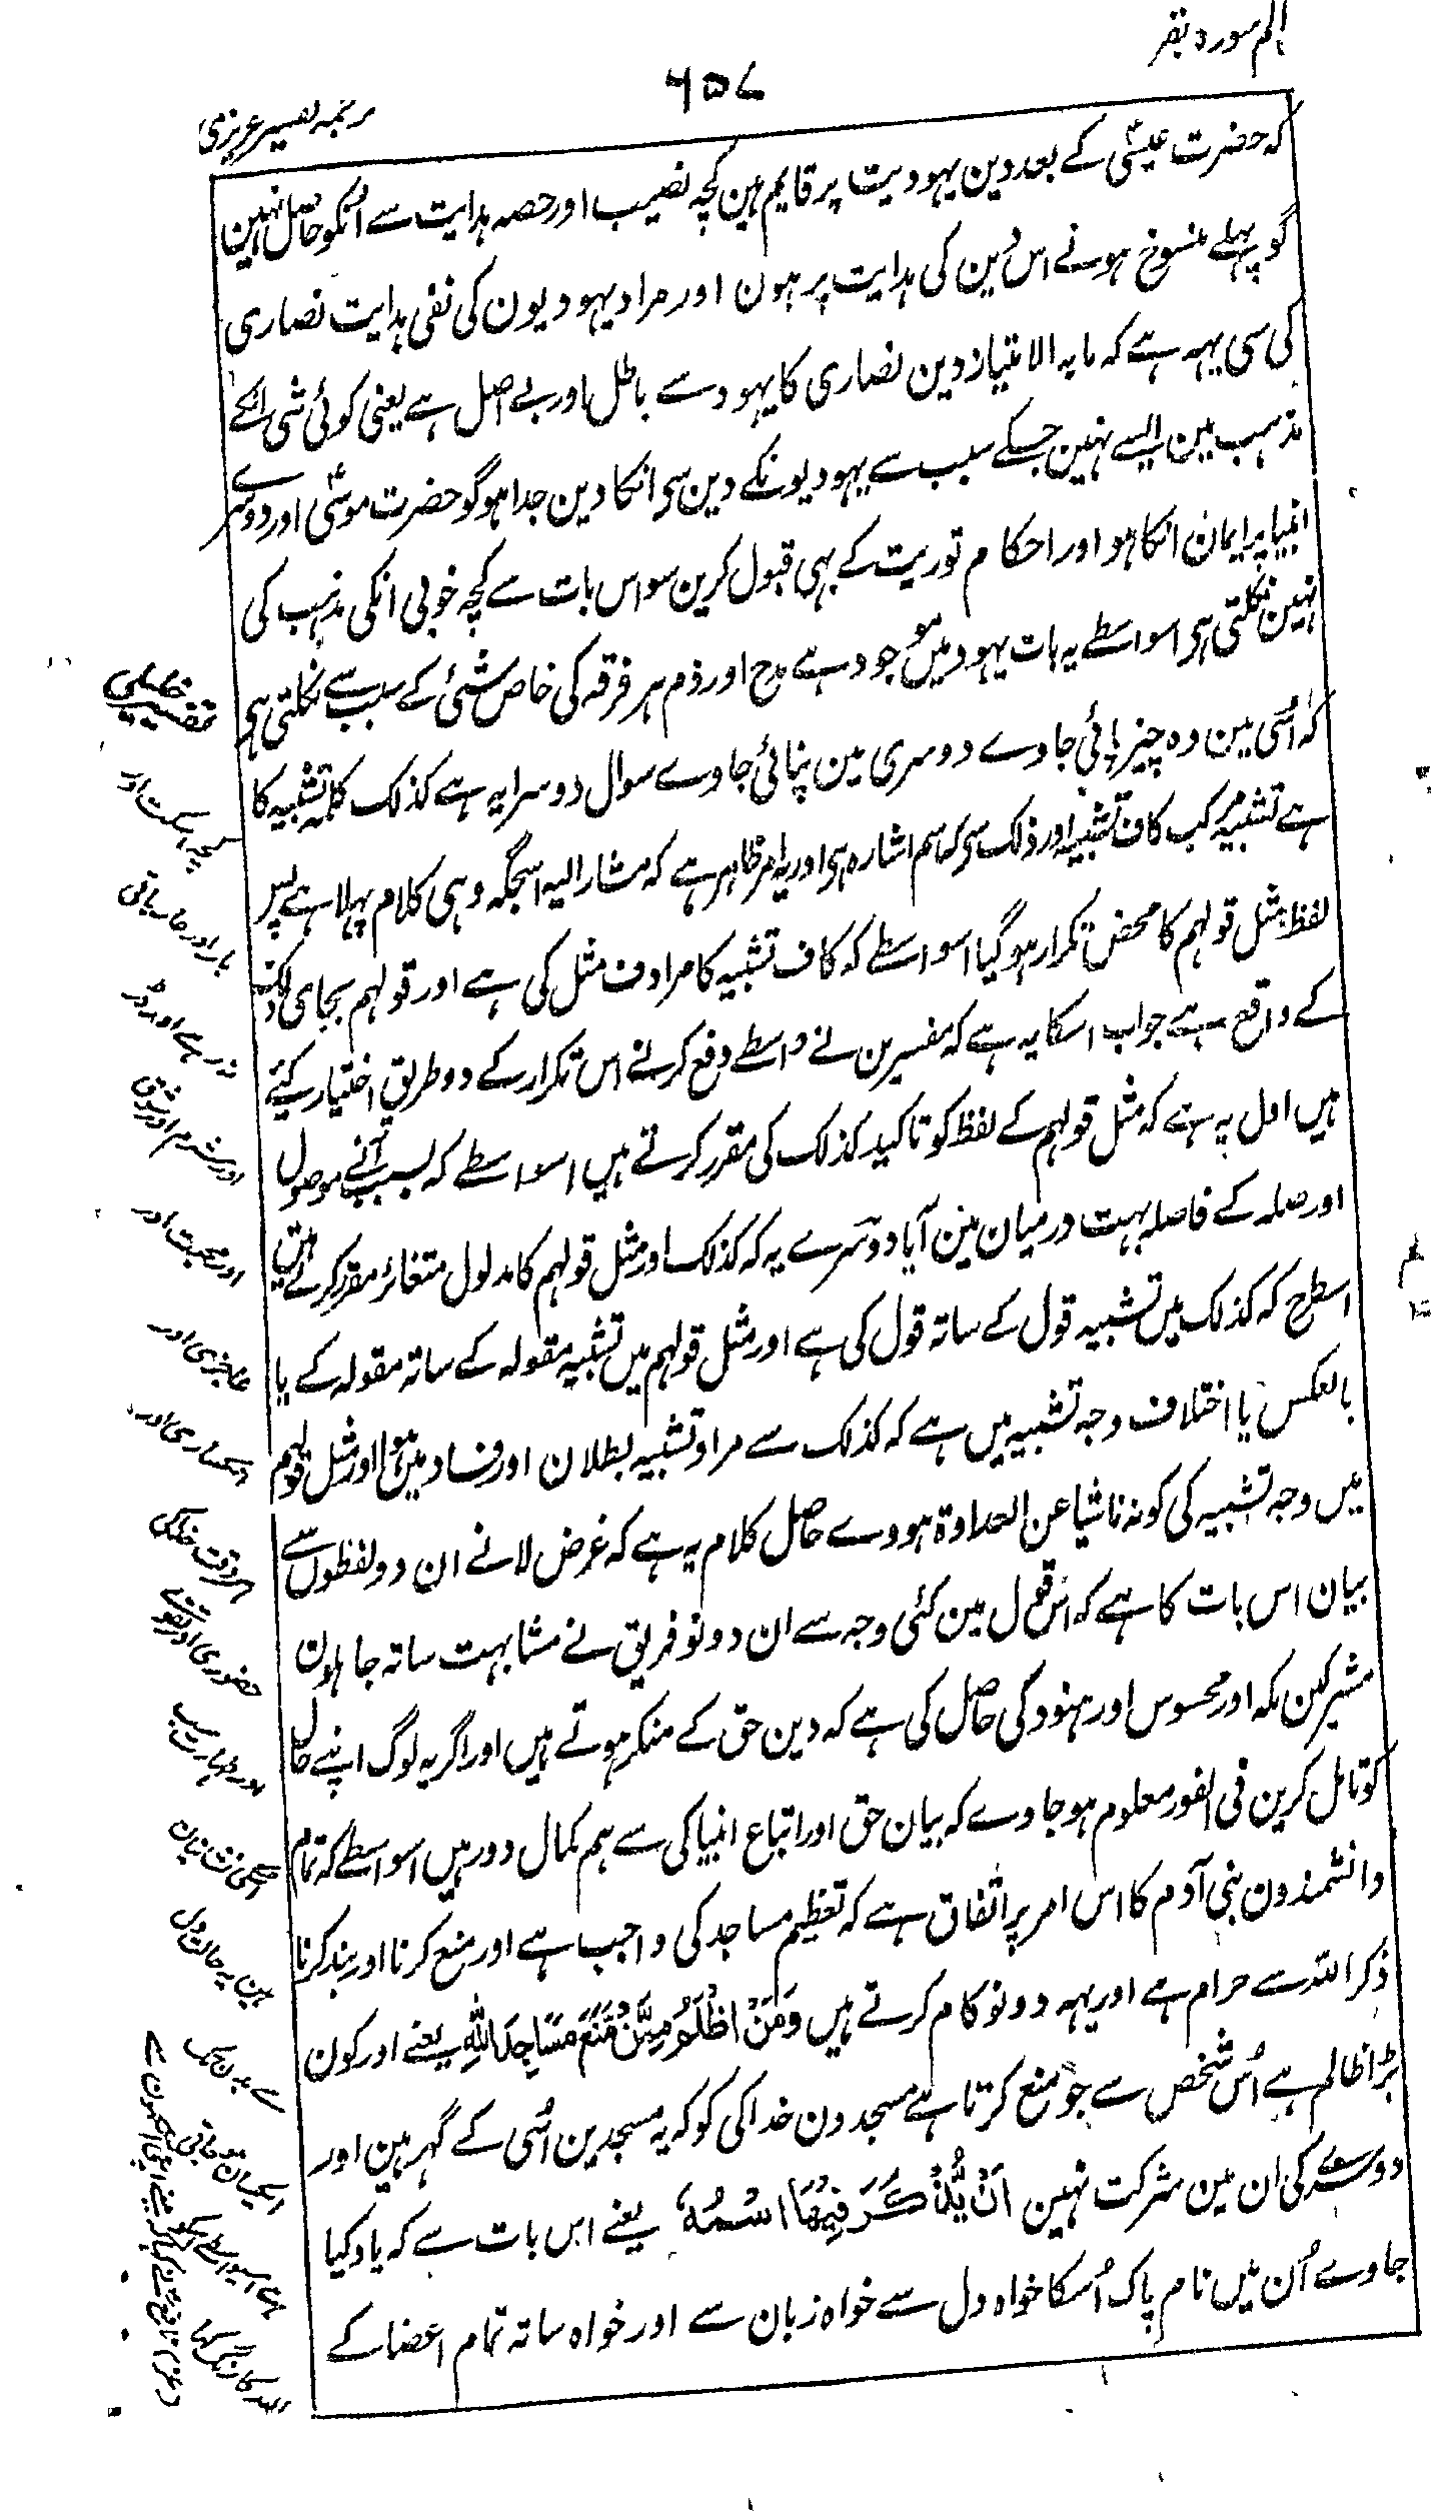 الم سورہ بقر
۶۵۷
ترجمہ تفسیر عزیزی
کہ حضرت عیسیٰؑ کے بعد دین یہودیت پر قایم ہین کچہ نصیب اور حصہ ہدایت سے انکو حاصل نہین
گو پہلے منسوخ ہونے اس دین کی ہدایت پر ہون اور مراد یہودیون کی نفی ہدایت نصاری
کی سی یہہ ہے کہ مابہ الامتیاز دین نصاری کا یہود سے باطل اور بے اصل ہے یعنی کوئی شی انکے
مذہب مین ایسے نہین جسکے سبب سے یہودیونکے دین سی انکا دین جدا ہو گو حضرت موسیٰؑ اور دوسرے
انبیا پر ایمان انکا ہو اور احکام توریت کے بہی قبول کرین سو اس بات سے کچہ خوبی انکی مذہب کی
نہین نکلتی ہی اسواسطے یہ بات یہود میں موجود ہے مدح اور ذم ہر فرقہ کی خاص شئی کے سبب سے نکلتی ہی
کہ اُسی مین وہ چیز پائی جاوے دوسری مین نپائی جاوے سوال دوسرا یہ ہے کذلک کلمہ تشبیہ کا
ہے تشبیہ مرکب کاف تشبیہ اور ذلک سی کہ اسم اشارہ ہی اور یہ امر ظاہر ہے کہ مشار الیہ اسجگہ وہی کلام پہلا ہے پس
لفظ مثل قولہم کا محض تکرار ہوگیا اسواسطے کہ کاف تشبیہ کا مرادف مثل کی ہے اور قولہم بجای ذلک
کے واقع ہے جواب اسکا یہ ہے کہ مفسرین نے واسطے دفع کرنے اس تکرار کے دو طریق اختیار کیئے
ہیں اول یہ ہے کہ مثل قولہم کے لفظ کو تاکید کذلک کی مقرر کرتے ہیں اسواسطے کہ بسبب آنے موصول
اور صلہ کے فاصلہ بہت درمیان مین آیا دوسرے یہ کہ کذلک اور مثل قولہم کا مدلول متغائر مقرر کرتے ہین
اسطرح کہ کذلک میں تشبیہ قول کے ساتہ قول کی ہے اور مثل قولہم میں تشبیہ مقولہ کے ساتہ مقولہ کے یا
بالعکس یا اختلاف وجہ تشبیہ میں ہے کہ کذلک سے مراد تشبیہ بطلان اور فساد میں ہو اور مثل قولہم
میں وجہ تشبیہ کی کونہ ناشیا عن العداوة ہووے حاصل کلام یہ ہے کہ غرض لانے ان دو لفظوں سے
بیان اس بات کا ہے کہ اس قول مین کئی وجہ سے ان دونو فریق نے مشابہت ساتہ جاہلون
مشرکین مکہ اور محسوس اور ہنود کی حاصل کی ہے کہ دین حق کے منکر ہوتے ہیں اور اگر یہ لوگ اپنے حال
کو تامل کرین فی الفور معلوم ہو جاوے کہ بیان حق اور اتباع انبیا کی سے ہم بکمال دور ہیں اسواسطے کہ تمام
دانشمندون بنی آدم کا اس امر پر اتفاق ہے کہ تعظیم مساجد کی واجب ہے اور منع کرنا اور بند کرنا
ذکر اللہ سے حرام ہے اور یہہ دونو کام کرتے ہیں وَمَنْ اَظْلَمُ مِمَّنْ مَّنَعَ مَسَاجِدَ اللّٰهِ یعنے اور کون
بڑا ظالم ہے اُس شخص سے جو منع کرتا ہے مسجدون خدا کی کو کہ یہ مسجدین اُسی کے گہر ہین اور
دوسرے کی ان مین شرکت نہین اَنْ یُّذْكَرَ فِیْهَا اسْمُهٗ یعنے اس بات سے کہ یاد کیا
جاوے اُن میں نام پاک اُسکا خواہ دل سے خواہ زبان سے اور خواہ ساتہ تمام اعضا کے
تفسیر خلیلی
عاجزی اور